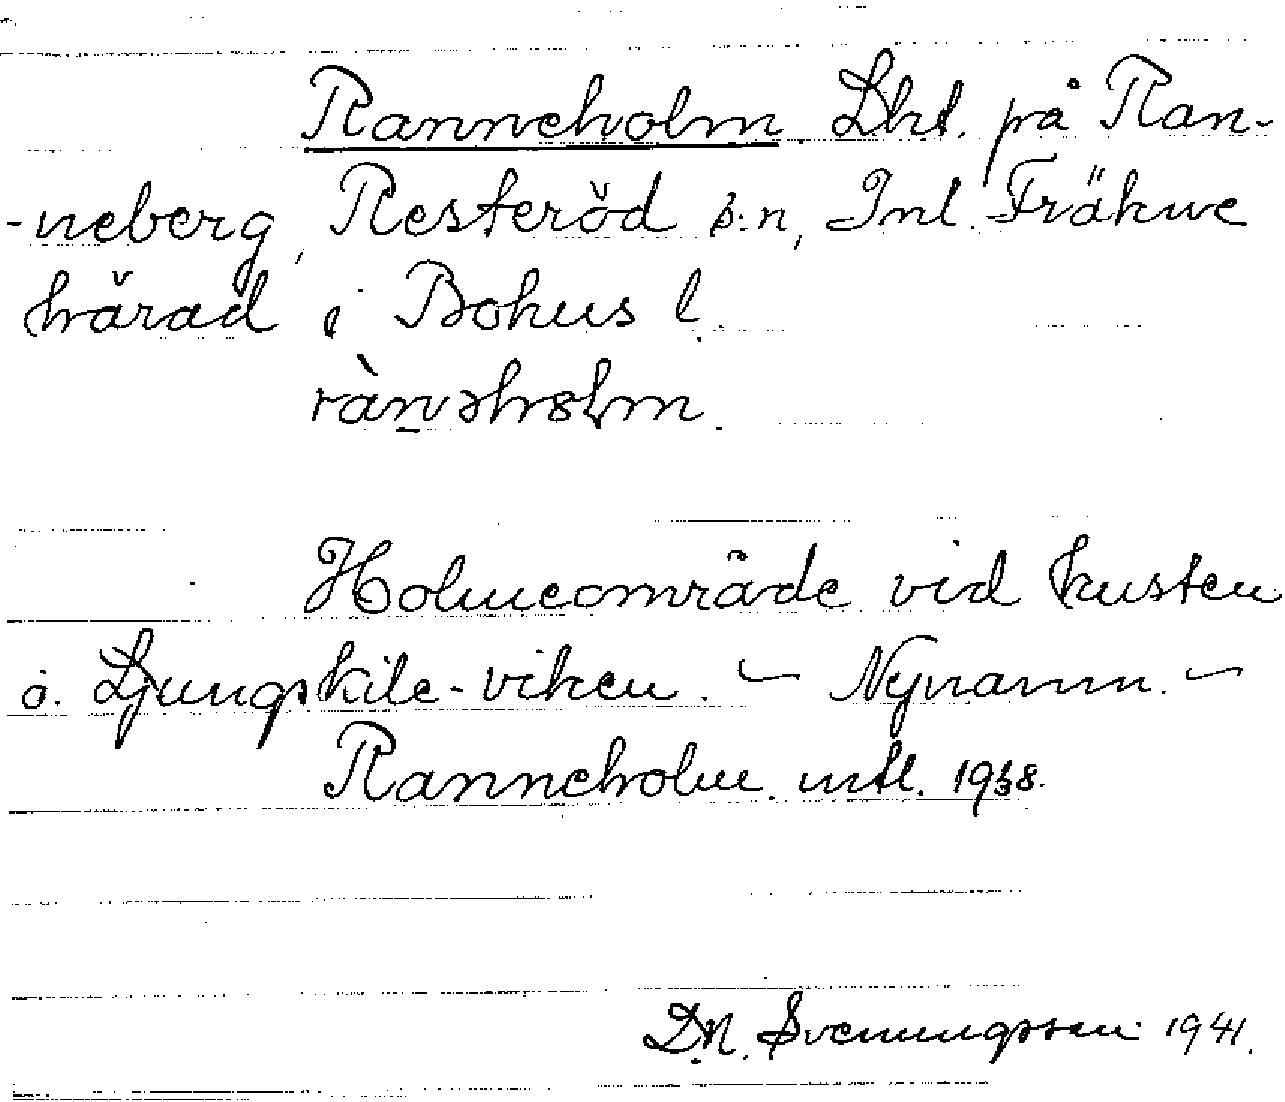 Ranneholm Lht. på Ran-
-neberg, Resteröd s:n, Inl. Fräkne
härad i Bohus l.
rànəhɵlm.
Holmeområde vid kusten
o. Ljungskile-viken. — Nynamn. —
Ranneholm mtl. 1938.
D.N. Svenungsson 1941.